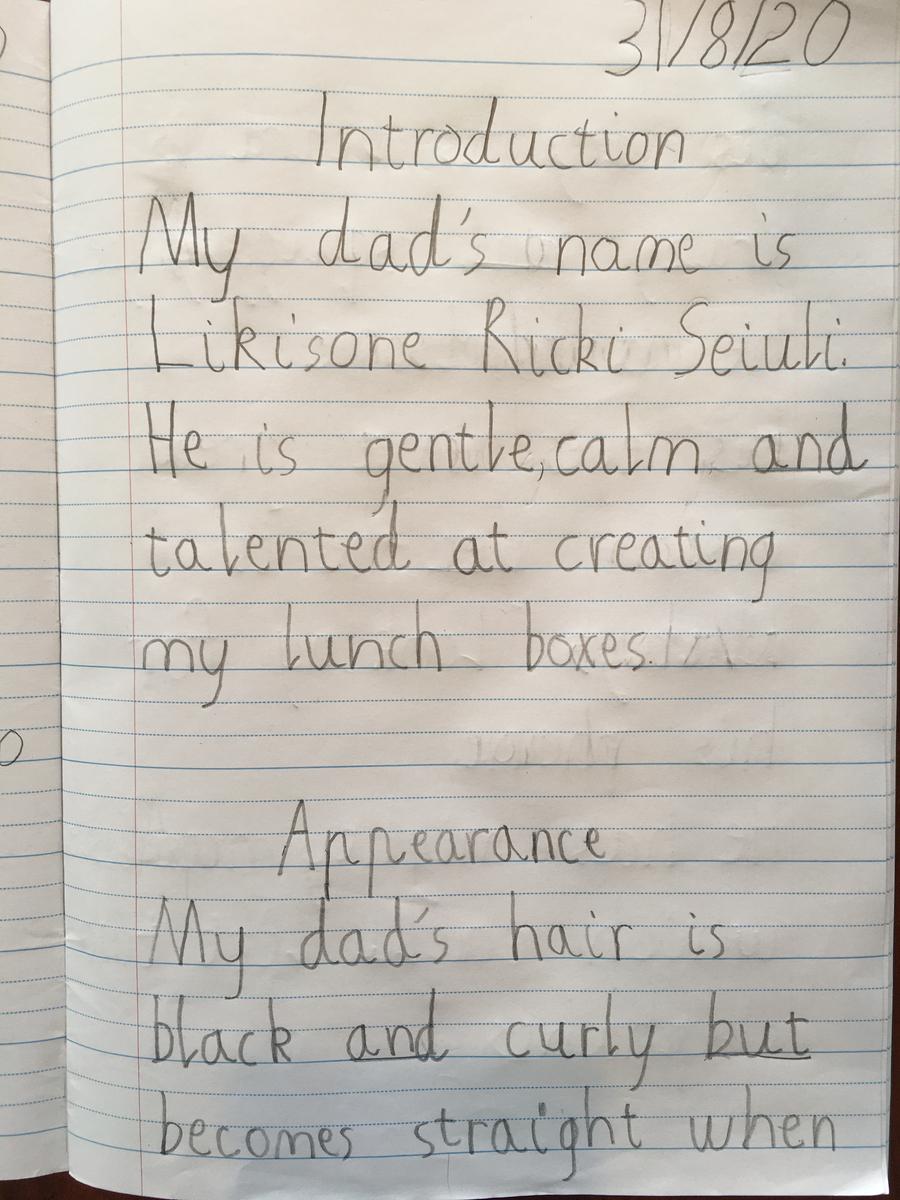 31/8/20
Introduction
My dad's name is
Likisone Ricki Seiuli.
He is gentle, calm and
talented at creating
my lunch boxes.
Appearance
My dad's hair is
black and curly but
becomes straight when